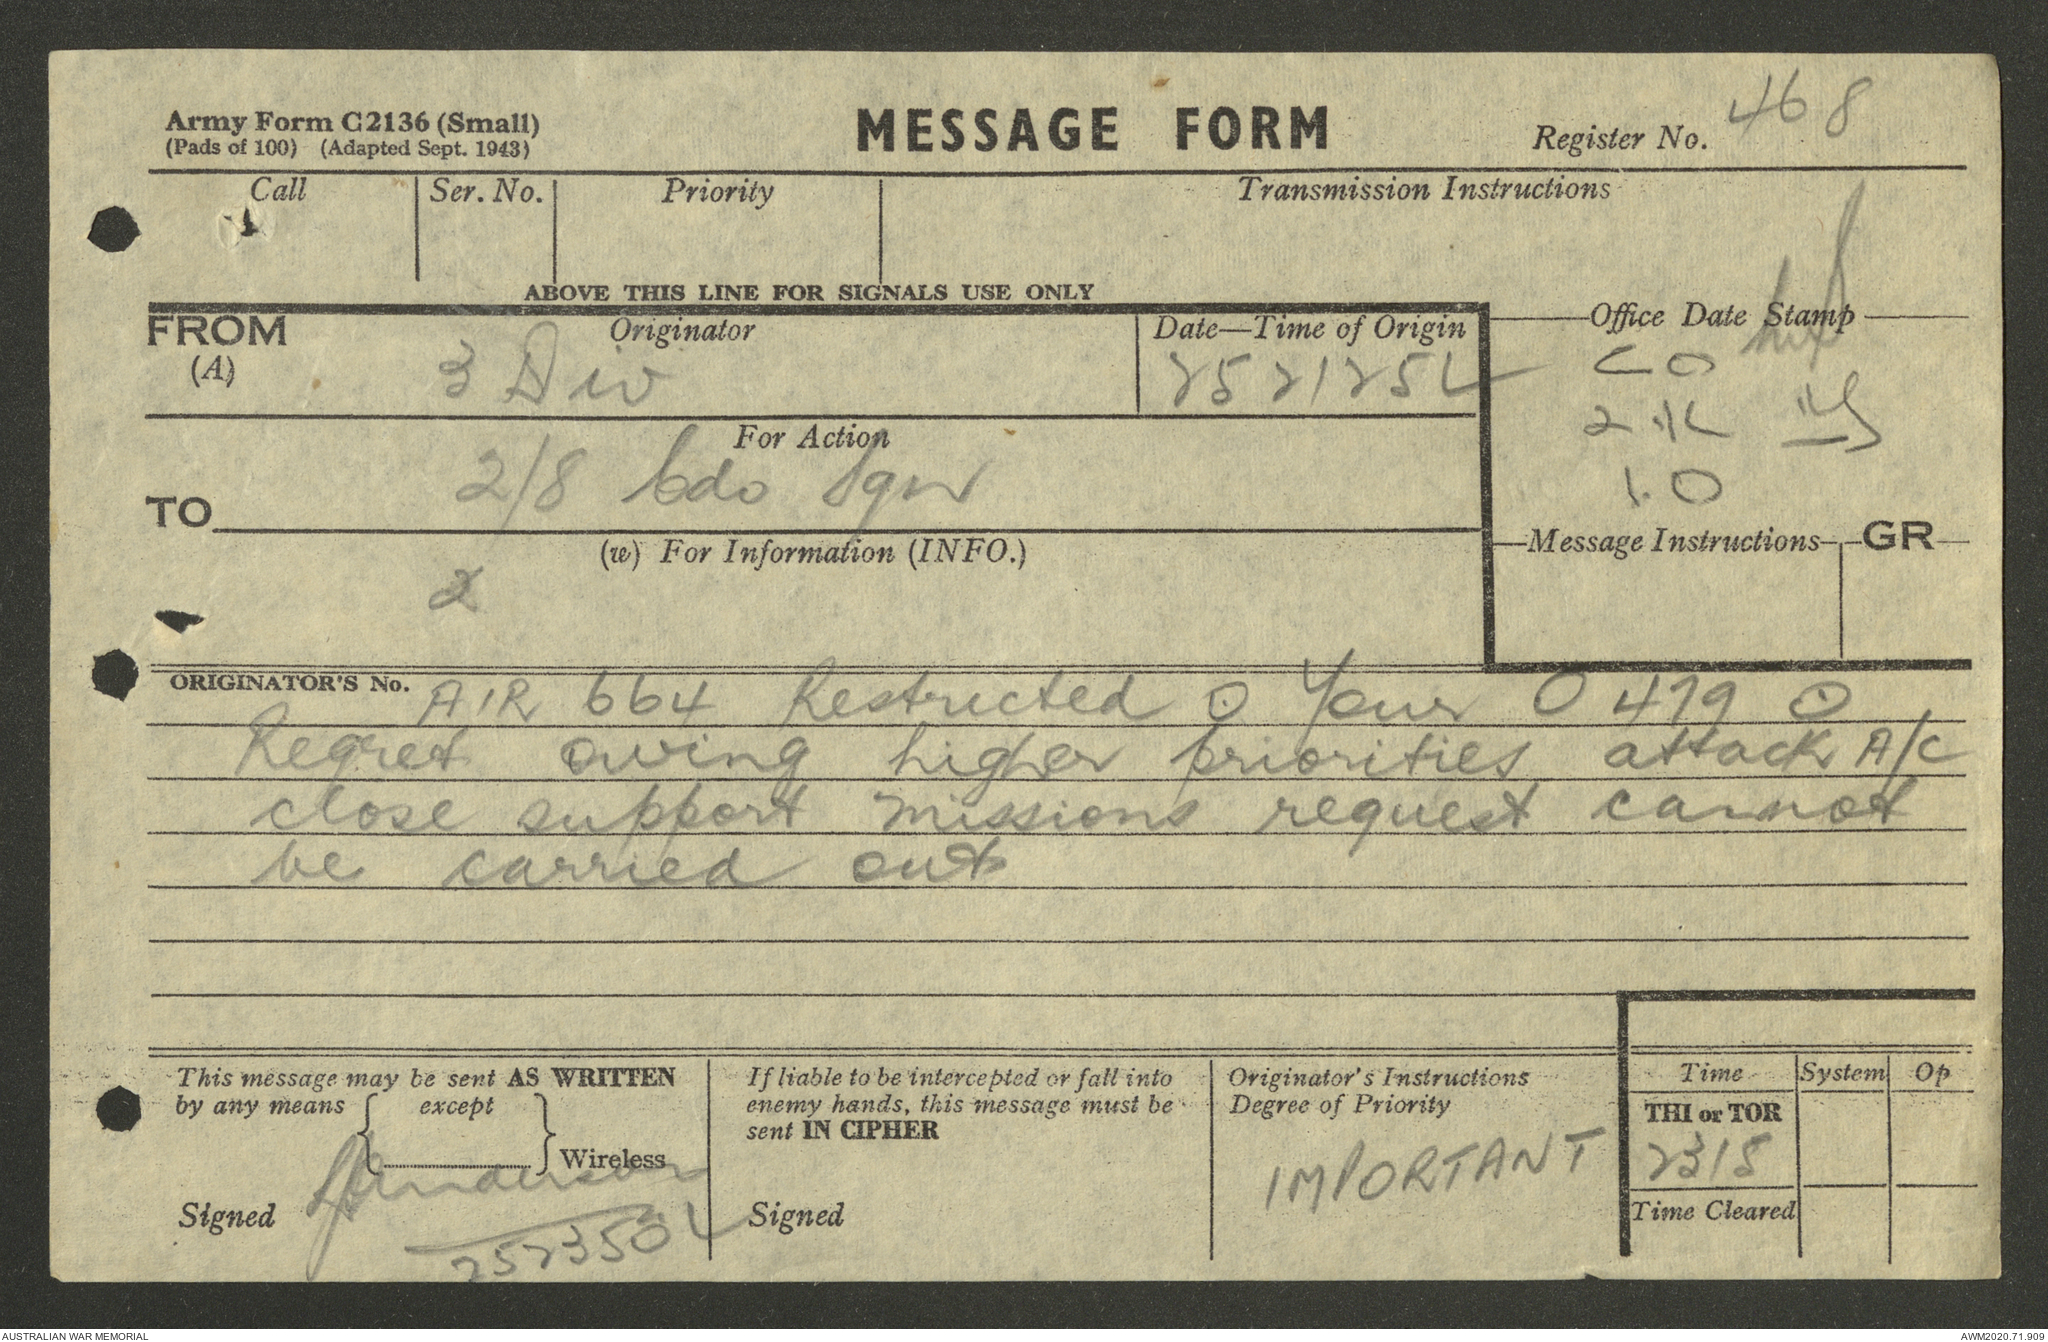 Army Form C2136 (Small)
(Pads of 100) (Adapted Sept. 1943)
MESSAGE FORM
Register No. 468
Call
Ser. No.
Priority
Transmission Instructions
ABOVE THIS LINE FOR SIGNALS USE ONLY
FROM
(A)
Originator
3 Div
Date—Time of Origin
252125L
Office Date Stamp
CO
2 I/C
I.O
For Action
2/8 Cdo Sqn
TO
(w) For Information (INFO.)
2
Message Instructions
GR
ORIGINATOR'S No.
AIR 664 Restricted O Your O 479 O
Regret owing higher priorities attack A/C
close support missions request cannot
be carried out
This message may be sent AS WRITTEN
by any means { except
} Wireless
Signed
252350L
If liable to be intercepted or fall into
enemy hands, this message must be
sent IN CIPHER
Signed
Originator's Instructions
Degree of Priority
IMPORTANT
Time
System
Op
THI or TOR
2315
Time Cleared
AUSTRALIAN WAR MEMORIAL
AWM2020.71.909